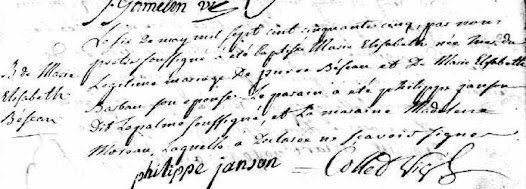 J Gamelin vic
Le six de may mil sept cent cinquante cinq par nous
prêtre soussigné a été baptisée Marie Elisabeth née hier du
B de Marie
Elisabeth
Béseau
Legitime mariage de Béseau et De Marie Elisabeth
Barbau son epouse. Le parain a été philippe janson
Dit Lapalme soussigné, et La maraine
Moreau, Laquelle a Declaree ne scavoir signer
philippe janson